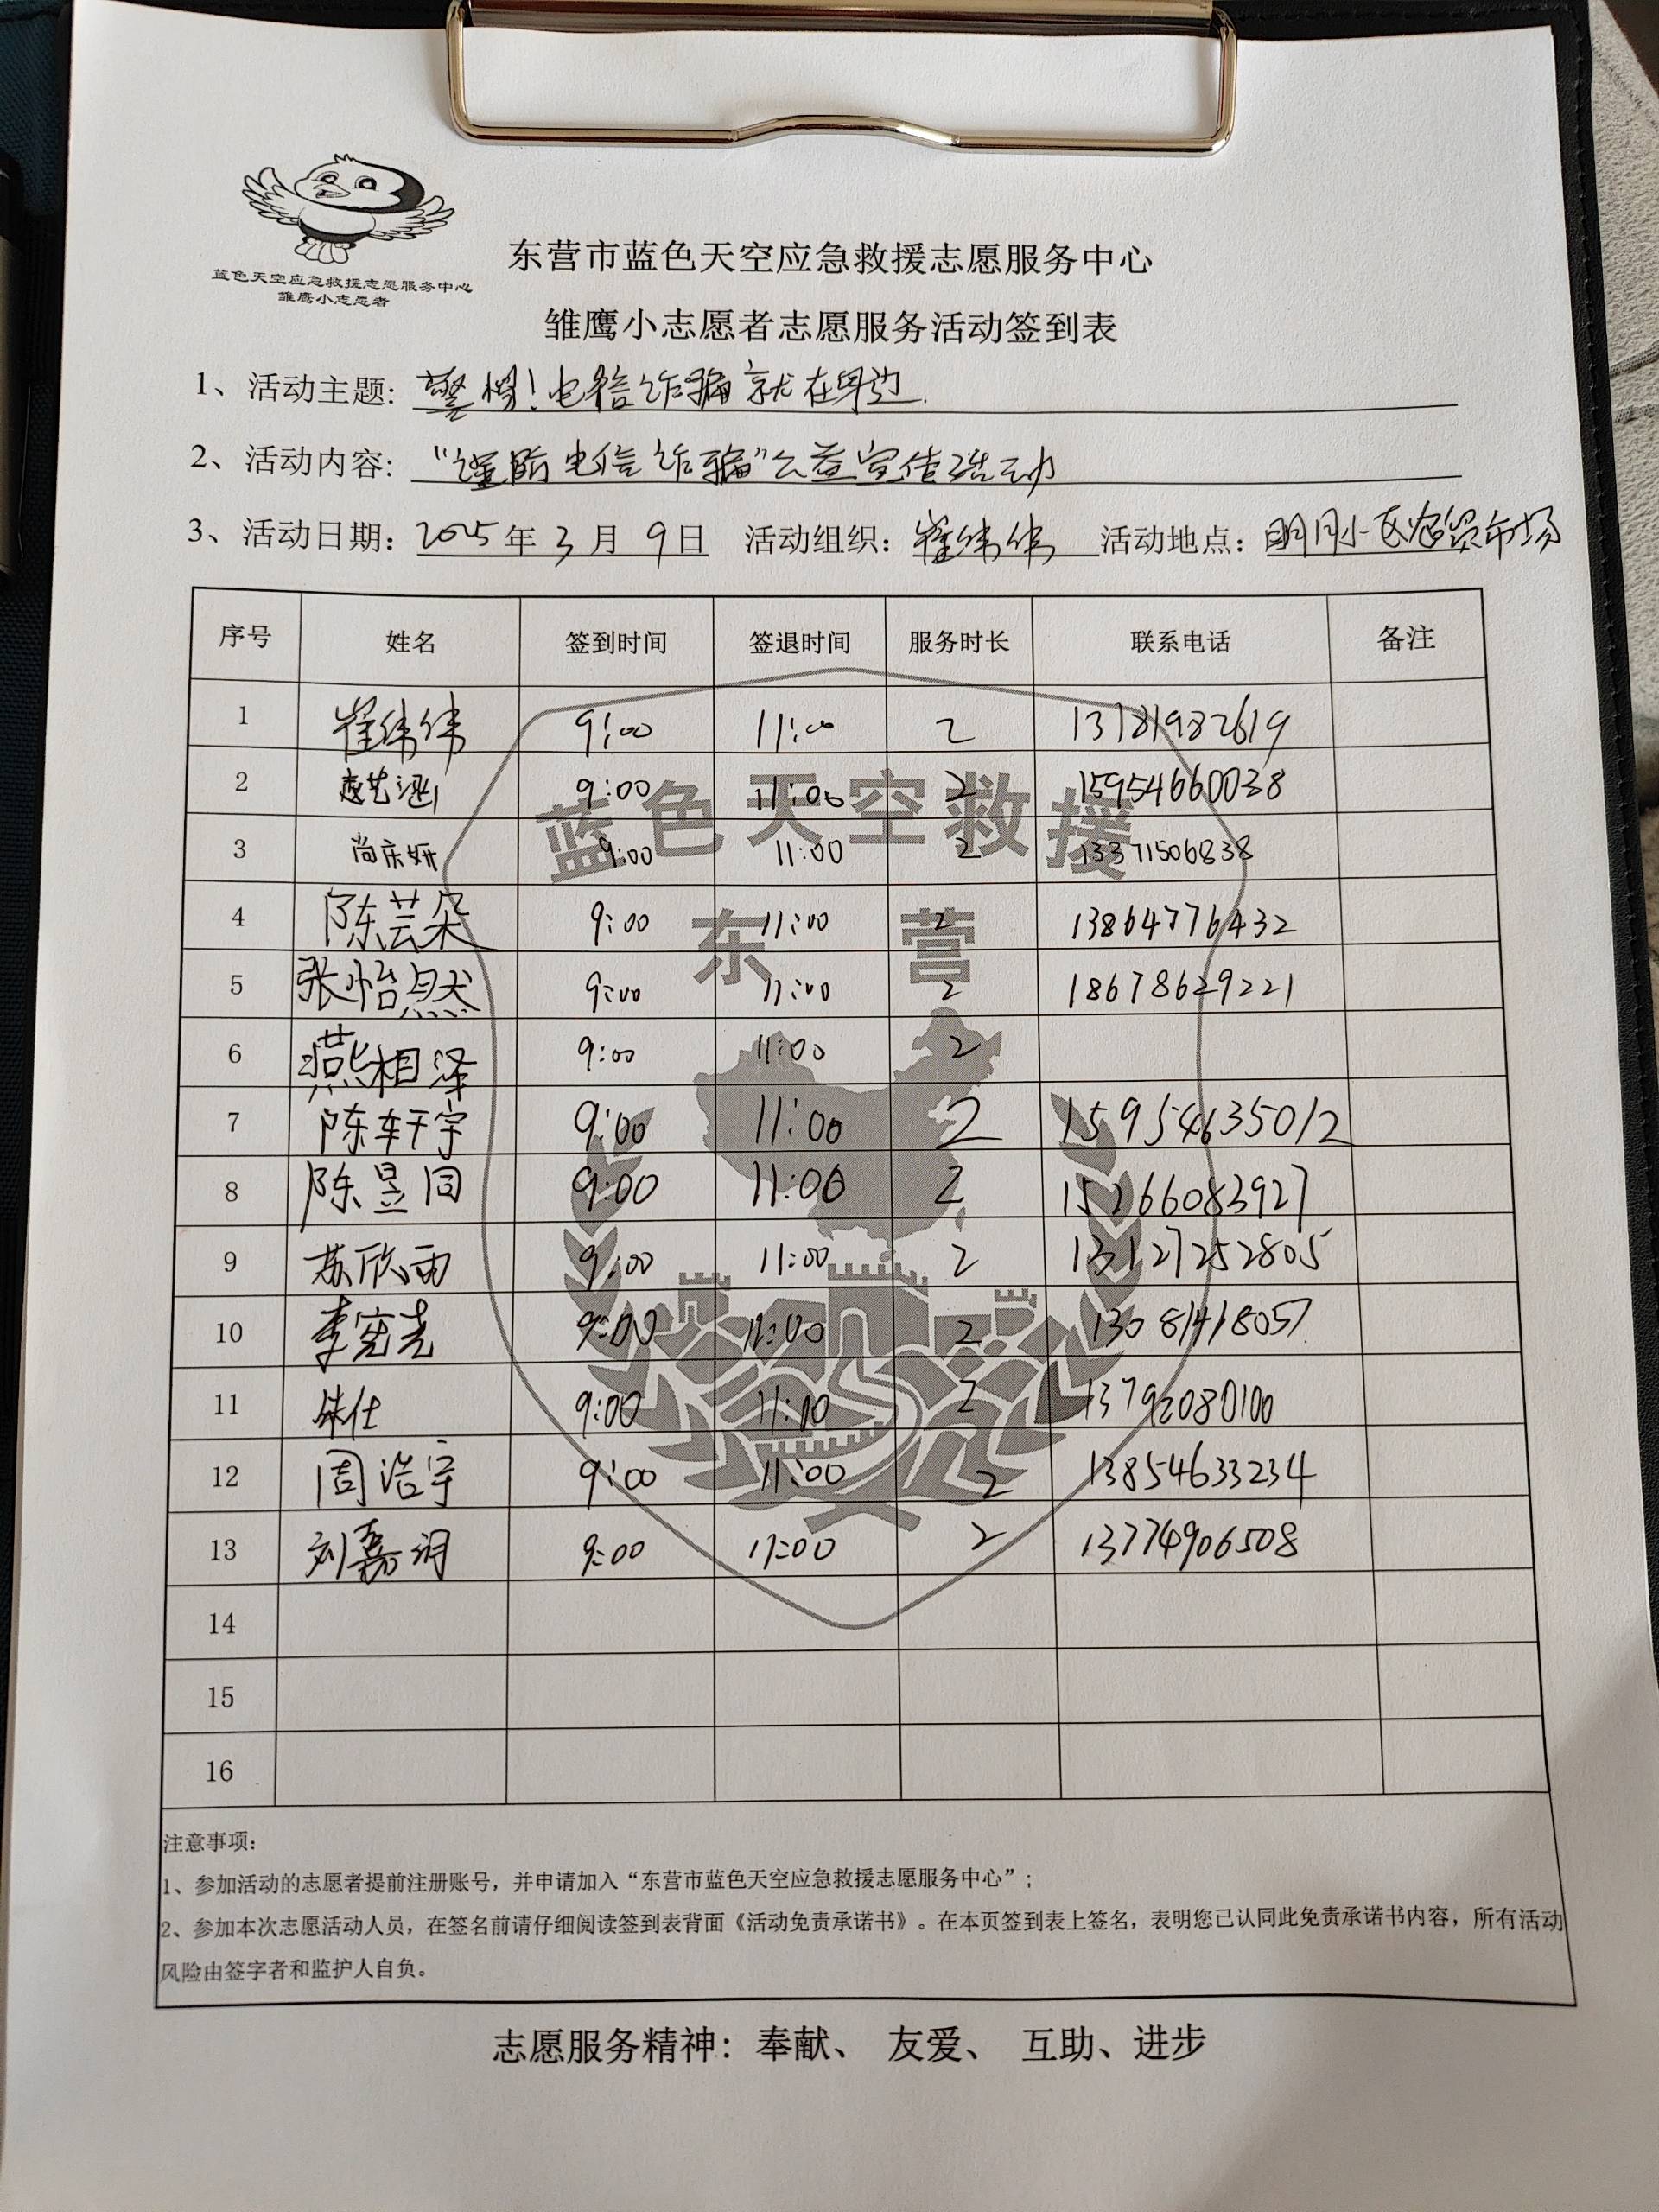 蓝色天空应急救援志愿服务中心
雏鹰小志愿者
东营市蓝色天空应急救援志愿服务中心
雏鹰小志愿者志愿服务活动签到表
1、活动主题: 警惕!电信诈骗就在身边.
2、活动内容: “谨防电信诈骗”公益宣传活动
3、活动日期: 2025年 3 月 9 日 活动组织: 崔纬伟 活动地点: 明月小区农贸市场
序号 姓名 签到时间 签退时间 服务时长 联系电话 备注
1 崔纬伟 9:00 11:00 2 13781982619
2 9:00 11:00 2 15954660038
3 尚庆妍 9:00 11:00 2 13371506838
4 陈芸朵 9:00 11:00 2 13864776432
5 张怡然 9:00 11:00 2 18678629221
6 燕相泽 9:00 11:00 2
7 陈轩宇 9:00 11:00 2 15954635012
8 陈昱同 9:00 11:00 2 15266083927
9 苏欣雨 9:00 11:00 2 13127252805
10 李宪尧 9:00 11:00 2 13081418057
11 朱仕 9:00 11:00 2 13792080100
12 周浩宇 9:00 11:00 2 13854633234
13 刘嘉润 9:00 11:00 2 13774906508
14
15
16
蓝色天空救援
东营
注意事项:
1、参加活动的志愿者提前注册账号，并申请加入“东营市蓝色天空应急救援志愿服务中心”;
2、参加本次志愿活动人员，在签名前请仔细阅读签到表背面《活动免责承诺书》。在本页签到表上签名，表明您已认同此免责承诺书内容，所有活动
风险由签字者和监护人自负。
志愿服务精神: 奉献、 友爱、 互助、进步